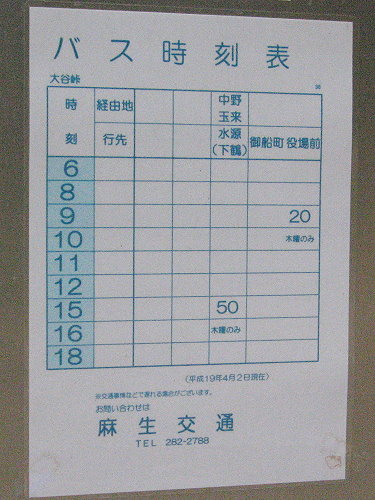 バス時刻表
大谷峠
時 経由地 中野 玉来
刻 行先 水源 (下鶴) 御船町役場前
6
8
9 20
10 木曜のみ
11
12
15 50
16 木曜のみ
18
(平成19年4月2日現在)
※交通事情などで遅れる場合がございます。
お問い合わせは
麻生交通
TEL 282-2788